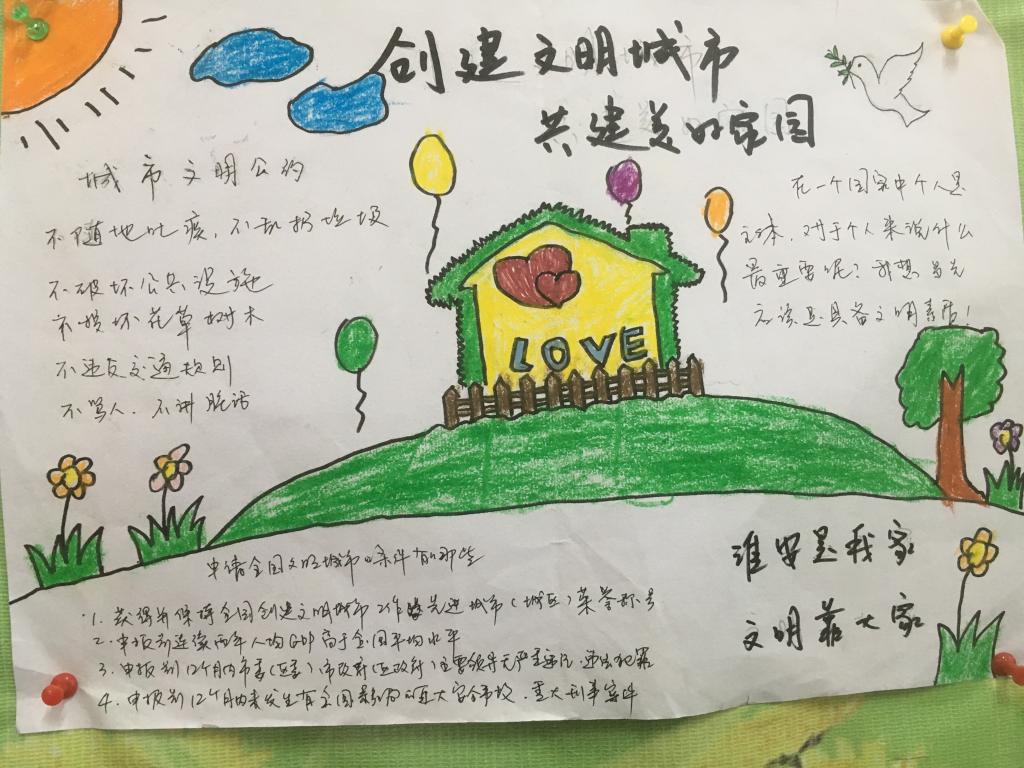 创建文明城市
共建美的家园
城市文明公约
不随地吐痰，不乱扔垃圾
不破坏公共设施
不损坏花草树木
不违反交通规则
不骂人，不讲脏话
在一个国家中个人是
主体，对于个人来说什么
最重要呢？我想首先
应该是具备文明素质！
LOVE
申请全国文明城市的条件有哪些
1. 获得并保持全国创建文明城市工作先进城市（城区）荣誉称号
2. 申报前连续两年人均GDP高于全国平均水平
3. 申报前12个月内市委（区委）、市政府（区政府）主要领导无严重违纪、违法犯罪
4. 申报前12个月内未发生有全国影响的重大安全事故、重大刑事案件
淮安是我家
文明靠大家